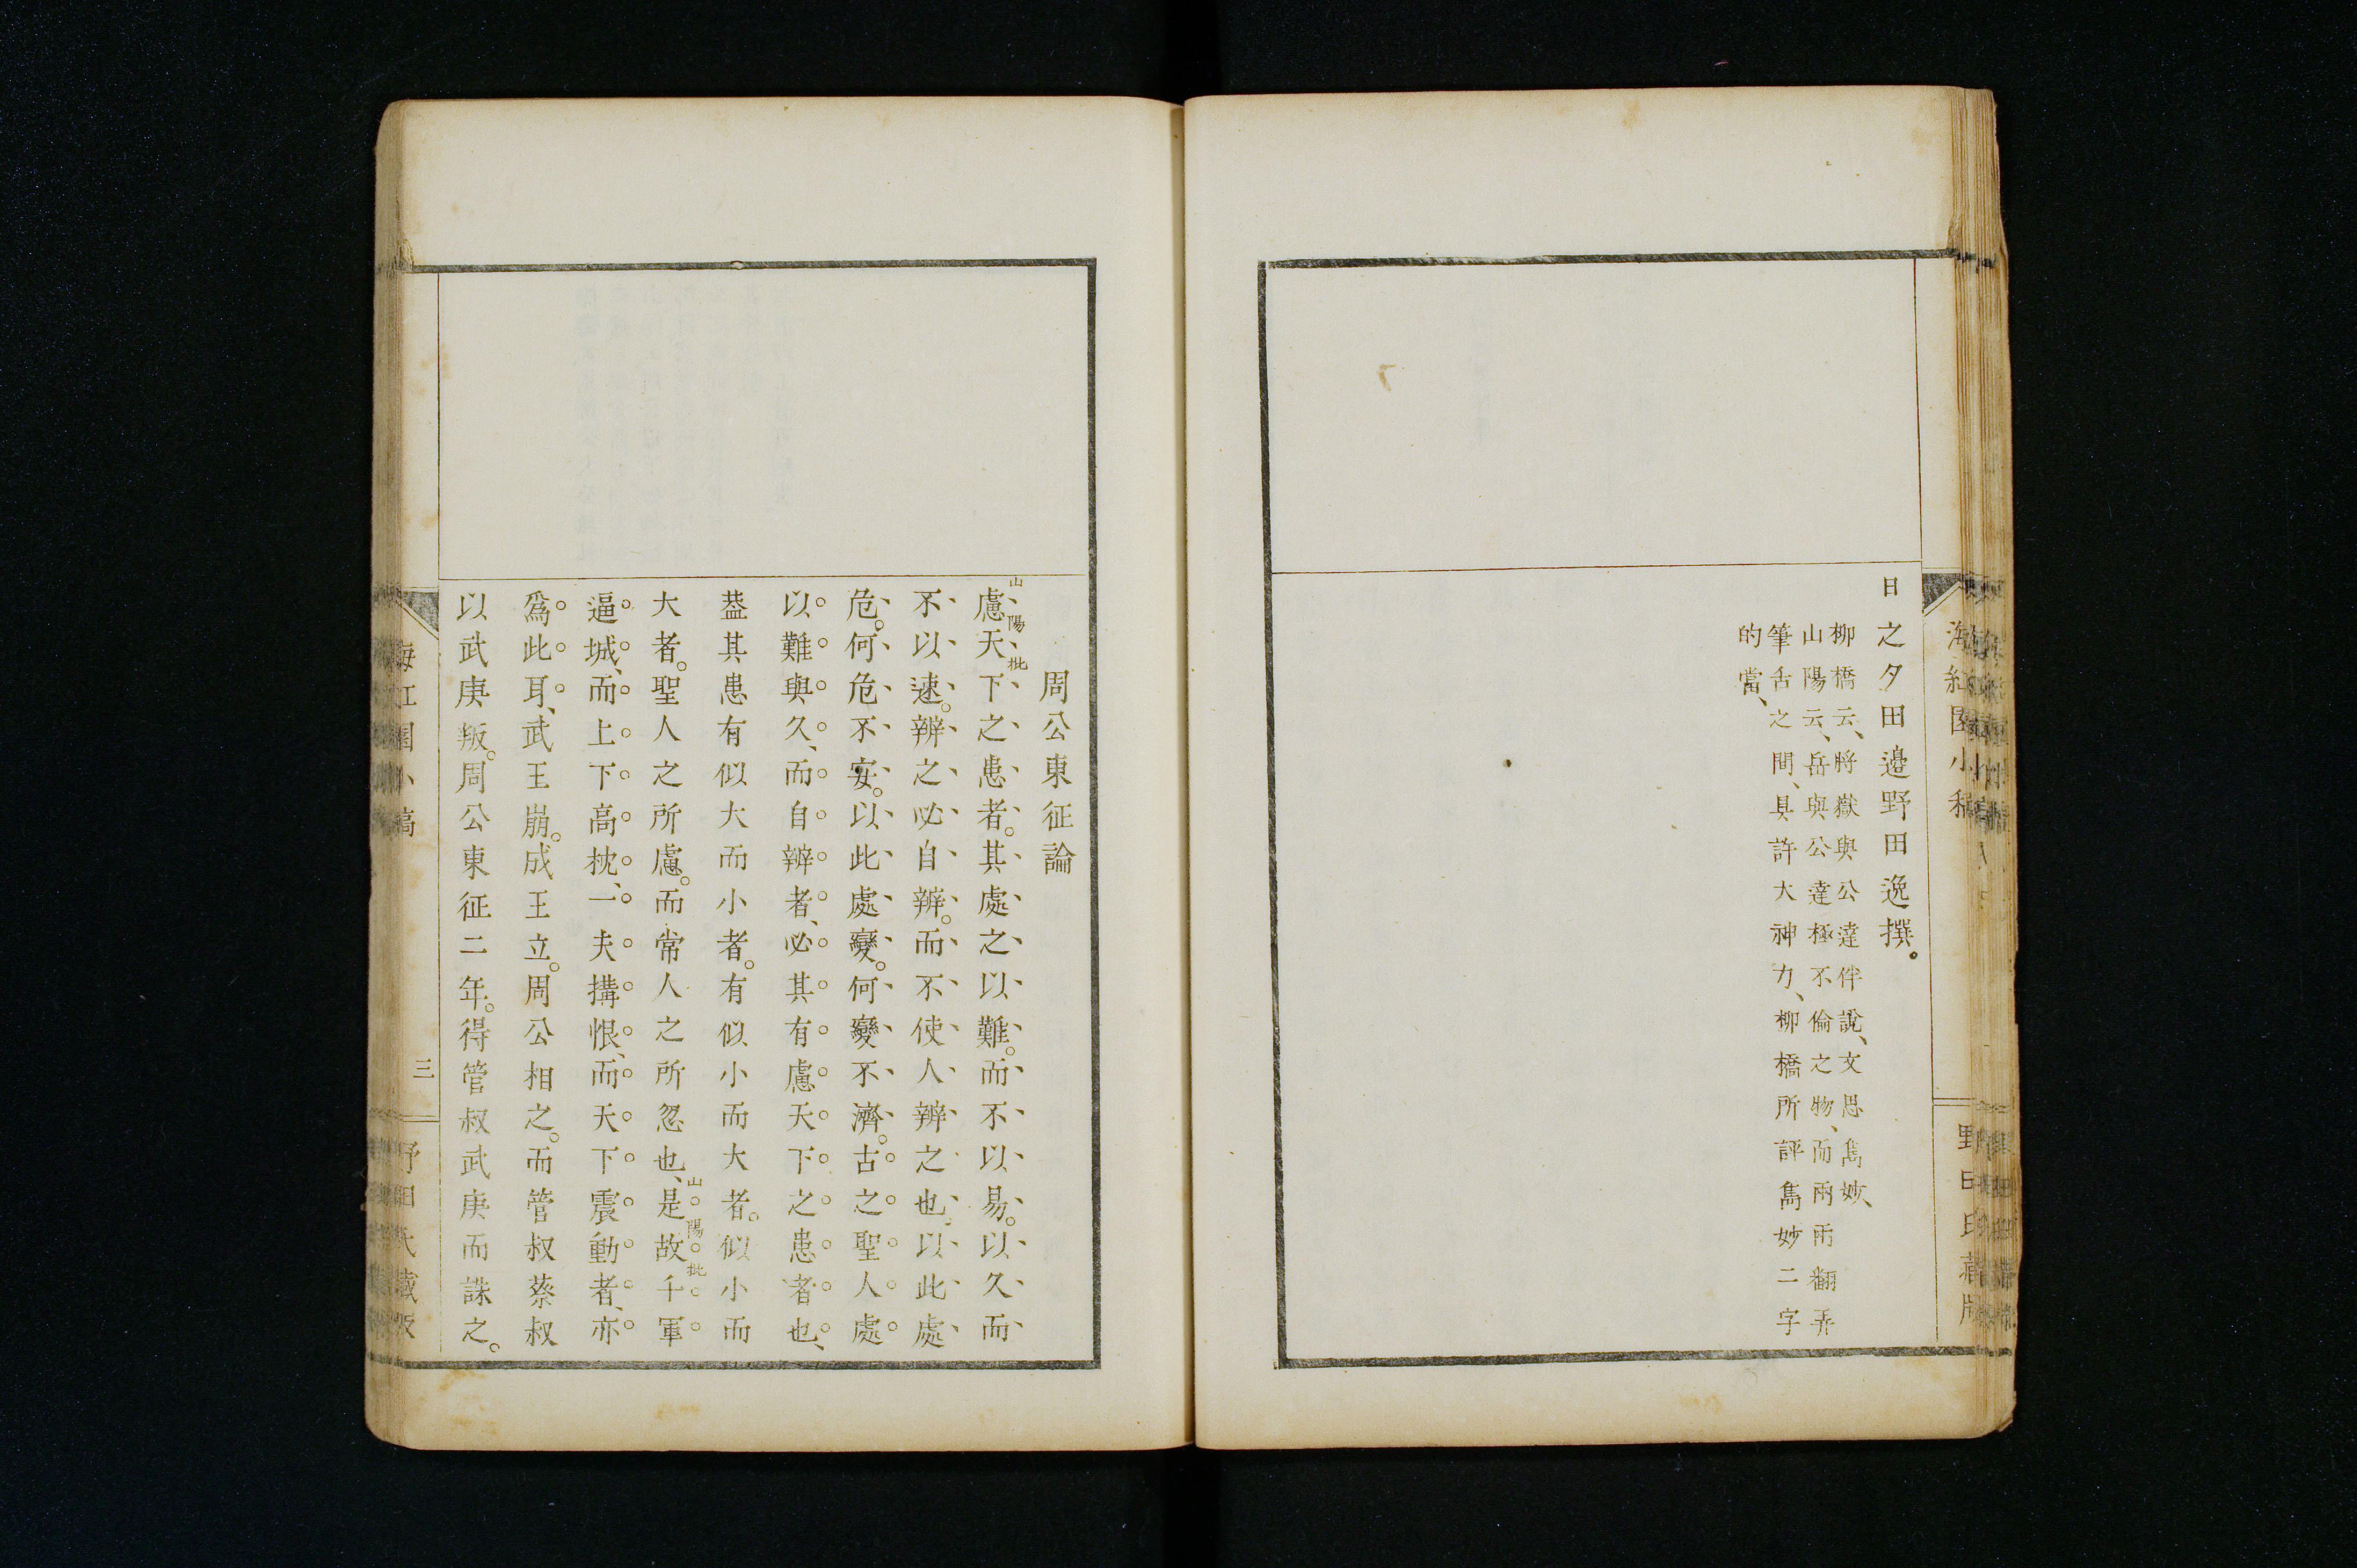 日之夕田邉野田逸撰。
柳橋云、將嶽與公達伴說、文思雋妙、
山陽云、岳與公達極不倫之物、而兩兩翻弄
筆舌之間、具許大神力、柳橋所評雋妙二字
的當、
周公東征論
山陽批
慮天下之患者。其處之以難。而不以易。以久而
不以速。辨之必自辨。而不使人辨之也。以此處
危。何危不安。以此處變。何變不濟。古之聖人處
以難與久、而自辨者、必其有慮天下之患者也、
葢其患有似大而小者。有似小而大者。似小而
大者。聖人之所慮。而常人之所忽也、是故千軍
山陽批
逼城、而上下高枕、一夫搆恨、而天下震動者、亦
爲此耳、武王崩。成王立。周公相之。而管叔蔡叔
以武庚叛。周公東征二年。得管叔武庚而誅之。
海紅園小稿
三
野田氏藏版